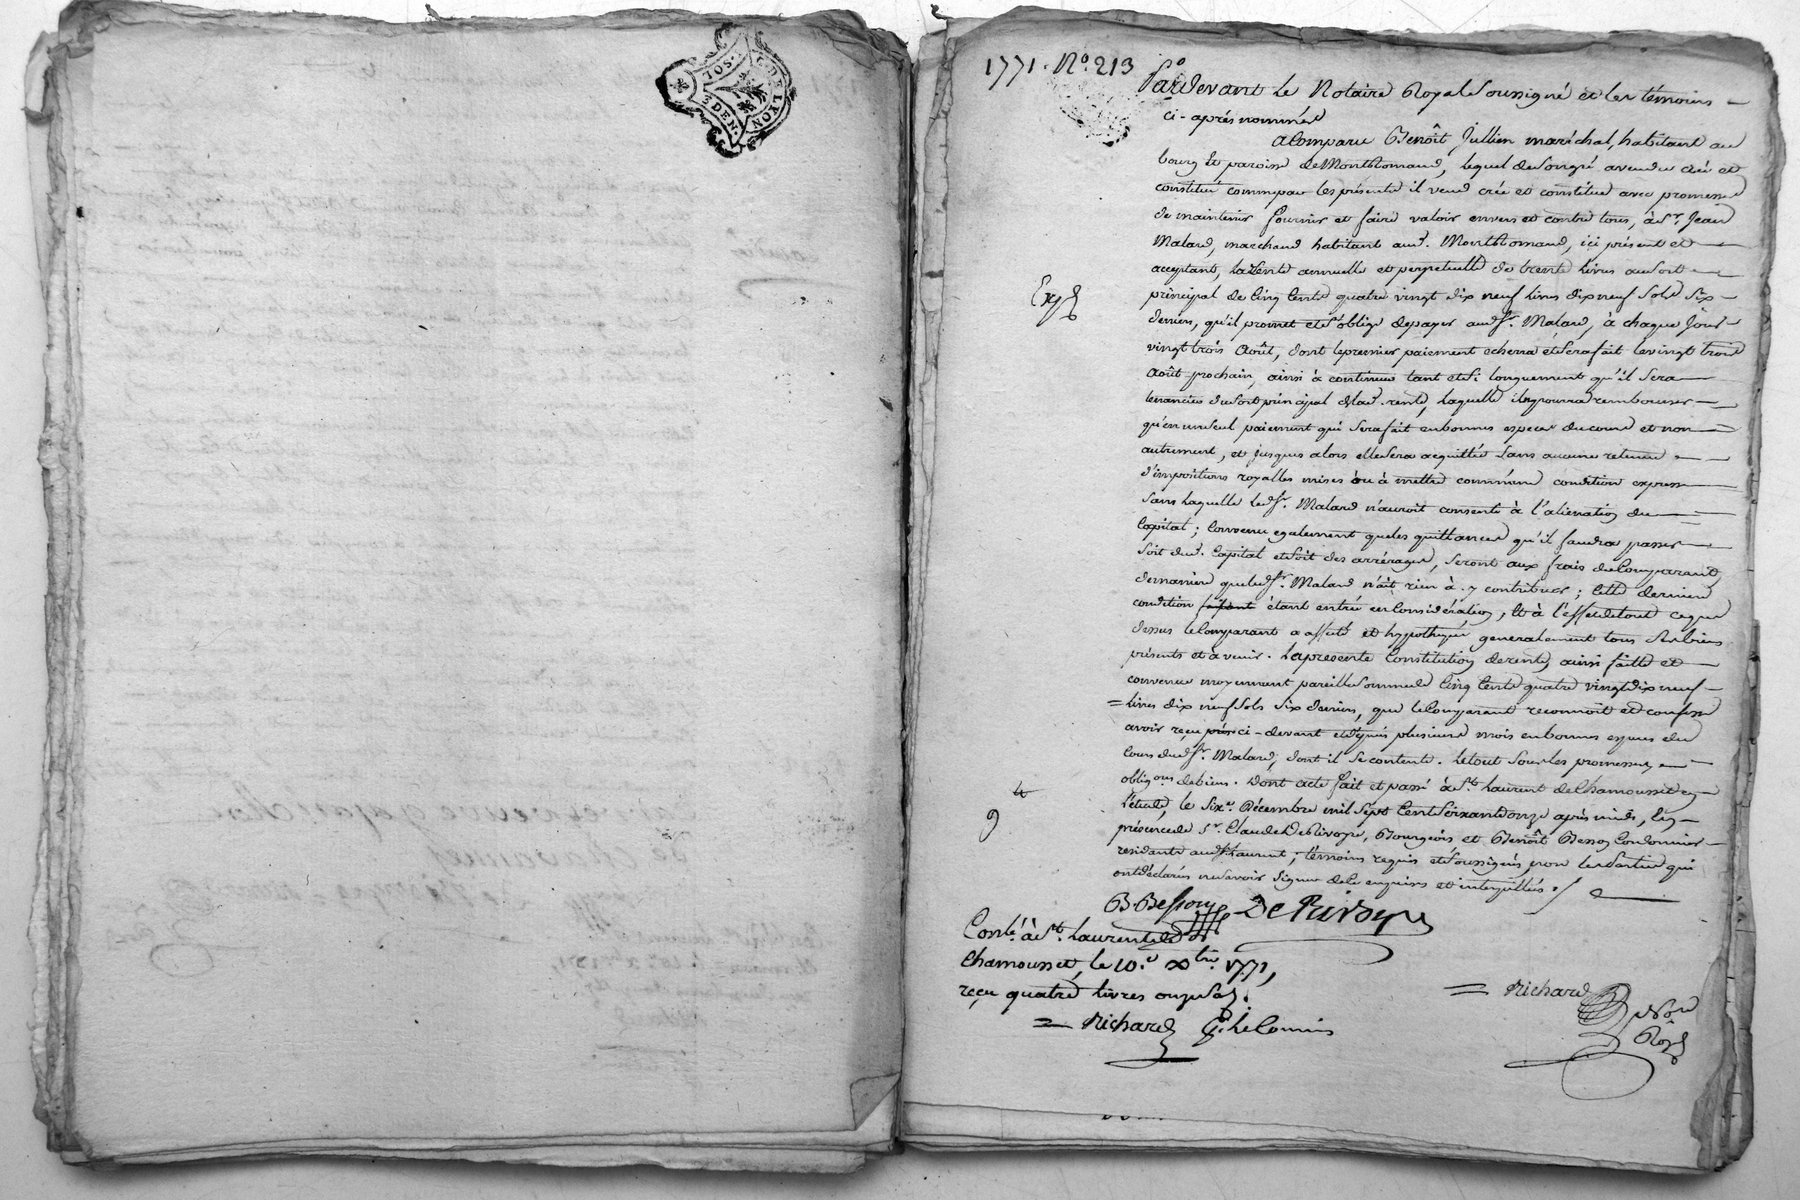 G. DE LYON
10S.
3 DEN.
1771. N.º 213
Pardevant le Notaire Royal soussigné et les témoins
ci-après nommés
a Comparu Benoît Jullien maréchal, habitant au
bourg et paroisse de Montromand, lequel de son gré a vendu créé et
constitué comme par les présentes il vend crée et constitue avec promesse
de maintenir fournir et faire valoir envers et contre tous, à Sr. Jean
Malard, marchand habitant aud. Montromand, ici présent et
acceptant, la rente annuelle et perpetuelle de trente livres au sort
Exp.d
principal de Cinq Cents quatre vingt dix neuf livres dix neuf sols six
deniers, qu'il promet et s'oblige de payer aud. Sr. Malard, à chaque jour
vingt trois Août, dont le premier paiement echerra et sera fait le vingt trois
Août prochain, ainsi à continuer tant et si longuement qu'il sera
tenancier du sort principal de lad. rente, laquelle il ne pourra rembourser
qu'en un seul paiement qui sera fait en bonnes especes du cours et non
autrement, et jusques alors elle sera acquittée sans aucune retenue
d'impositions royalles mises ou à mettre comme condition expresse
sans laquelle led. Sr. Malard n'auroit consenti à l'alienation du
Capital; Convenu egalement que les quittances qu'il faudra passer
soit dud. Capital et soit des arrérages, seront aux frais du Comparant,
de maniere que led. Sr. Malard n'ait rien à y contribuer; Cette derniere
condition étant entrée en Considération, Et à l'effet de tout ce que
dessus le Comparant a affecté et hypothequé generalement tous ses biens
présents et à venir. La presente Constitution de rente, ainsi faite et
convenue moyennant pareille somme de Cinq Cents quatre vingt dix neuf
= livres dix neuf sols six deniers, que le Comparant reconnoit et confesse
avoir reçu ci-devant et depuis plusieurs mois en bonnes especes du
Cours dud. Sr. Malard, dont il se contente. Le tout sous les promesses,
oblig.ons de biens. Dont acte fait et passé à St. Laurent de Chamousset en
l'étude, le six.e Décembre mil sept Cent soixante onze après midi, En
présence de Sr. Claude De Rivoyre, Bourgeois et Benoît Besson Cordonnier
residants aud. St Laurent; témoins requis et soussignés, non les parties qui
ont déclaré ne savoir signer de ce enquises et interpellées./.
B. Besson De Rivoyre
Conlé. à St. Laurent de
Chamousset, le 10.e Xbre. 1771,
reçu quatre livres onze sols.
= Richard G. le Commis
= Richard
Nore
Royl